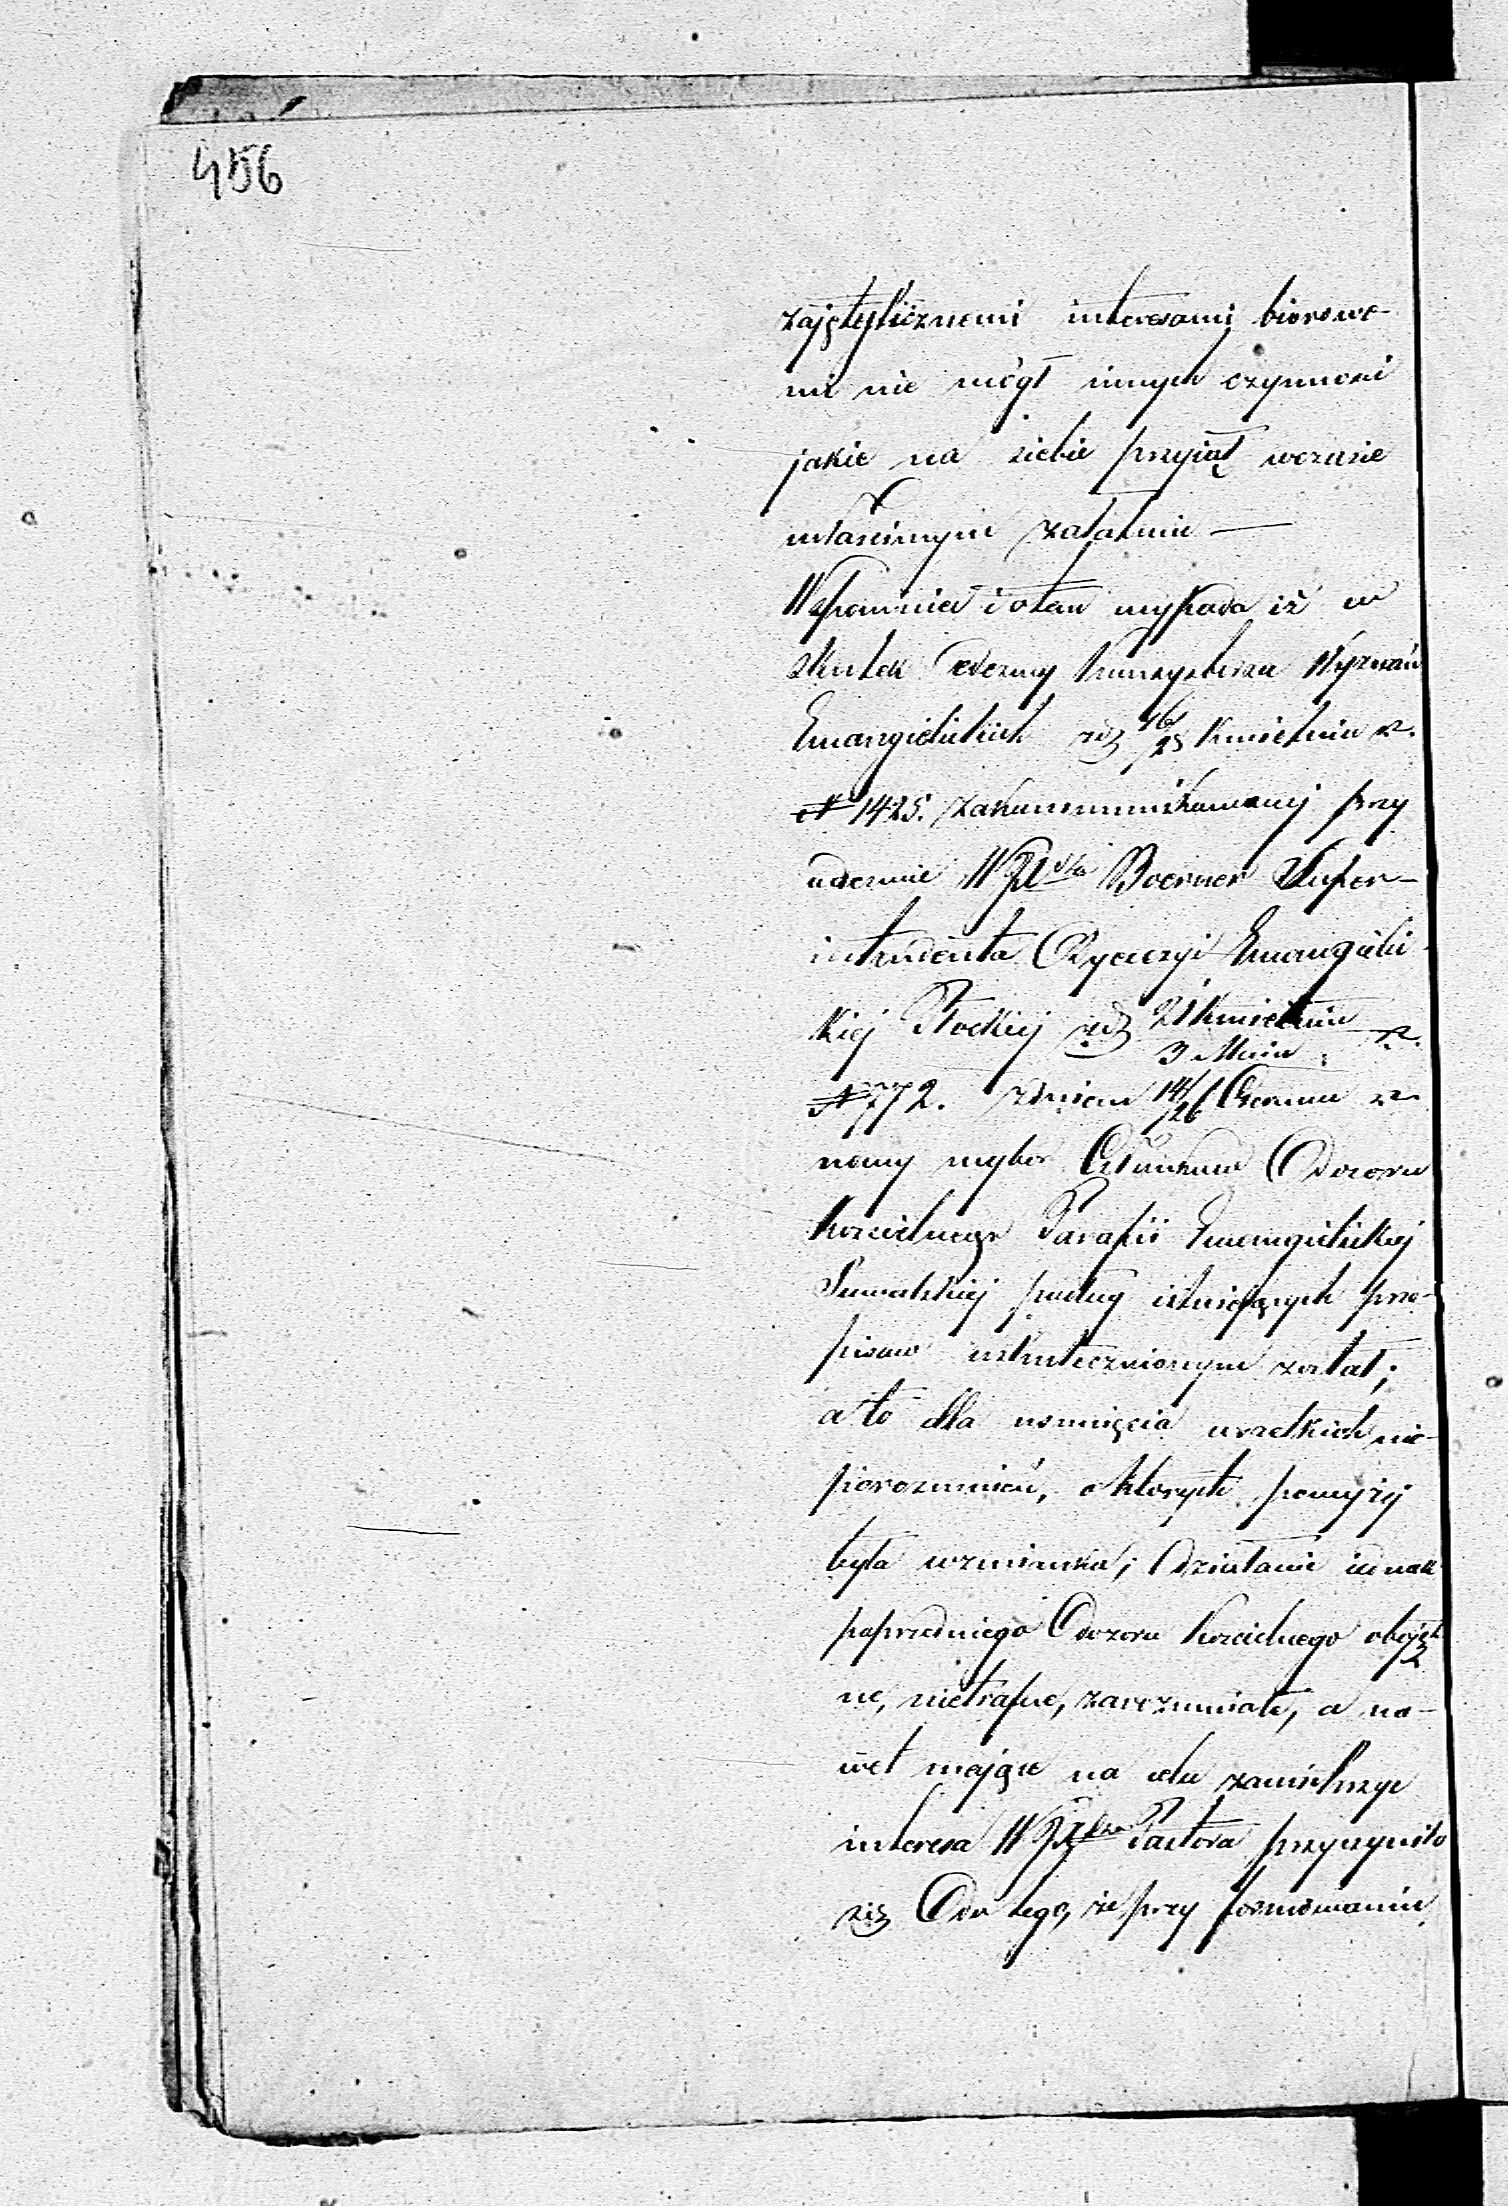 456
zajęty licznemi interesami biorowe-
mi nie mógł innych czynnosci
jakie na siebie przyiął wczasie
własciwym załatwic —
Wspomniec i o tem wypada iż w
skutek odezwy Konsystorza Wyznań
Ewangielickich zd 16/28 Kwietnia r.
N 1425. zakommunikowanej przy
odezwie WJX Boerner Super-
intendenta Dyecezyi Ewangielic-
kiej Płockiej zd 21 Kwietnia / 3 Maia r.
N 772. zdniem 14/26 Czerwca r
nowy wybor Członkow Dozoru
Koscielnego Parafii Ewangielickiej
Suwalskiej podług istniejących prze-
pisow uskutecznionym został;
a to dla usunięcia wszelkich nie-
porozumień, o ktorych powyżej
była wzmianka; działanie iednak
poprzedniego Dozoru Koscielnego obojęt-
ne, nietrafne, zarozumiałe, a na-
wet mające na celu zawichrzyc
interesa WJX Pastora przyczyniło
się do tego, że przy formowaniu